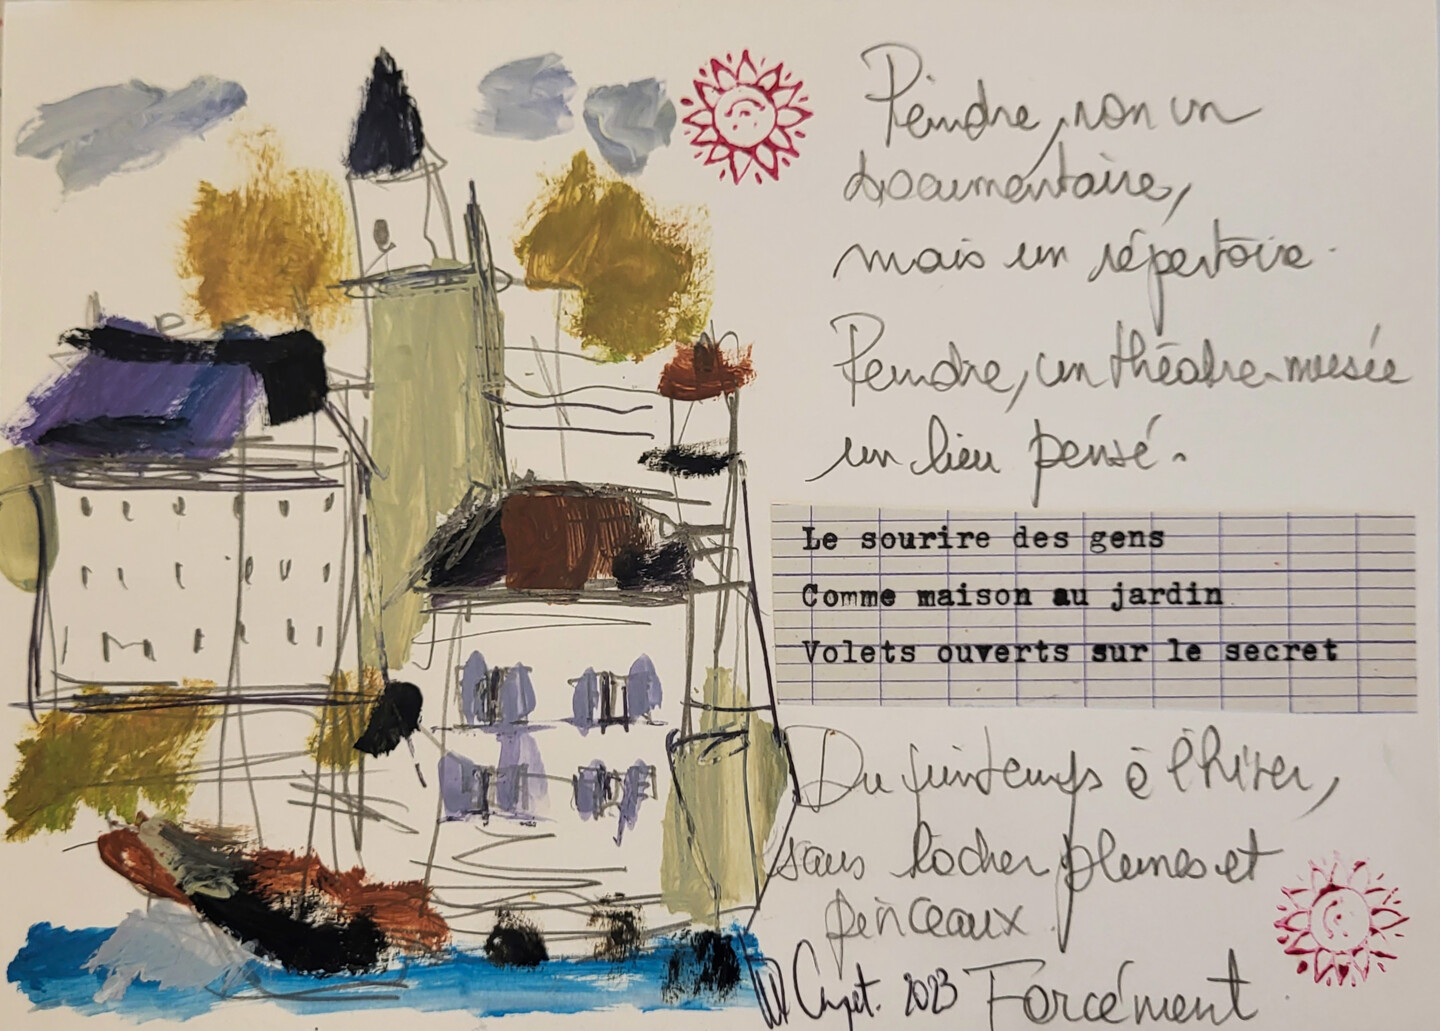 Peindre, non un
documentaire,
mais un répertoire.
Peindre, un théâtre-musée
un lieu pensé.
Le sourire des gens
Comme maison au jardin
Volets ouverts sur le secret
Du printemps à l'hiver,
sans lâcher plumes et
pinceaux.
2023
Forcément